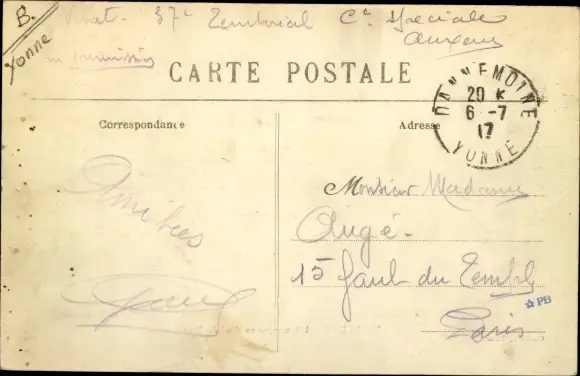 B.
Yonne
37e Territorial Cie Spéciale
en permission
CARTE POSTALE
DANNEMOINE
20 K
6 -7
17
YONNE
Correspondance
Adresse
Amitiés
Monsieur Madame
Augé
15 Faub du Templ
Paris
PB